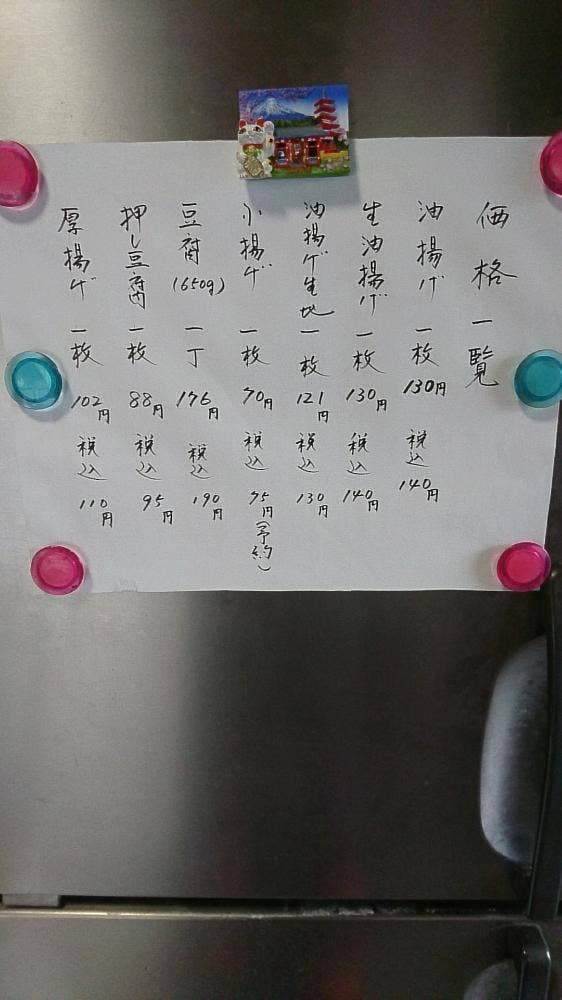 価格一覧
油揚げ 一枚 130円 税込 140円
生油揚げ 一枚 130円 税込 140円
油揚げ生地 一枚 121円 税込 130円
小揚げ 一枚 70円 税込 75円(予約)
豆腐(650g) 一丁 176円 税込 190円
押し豆腐 一枚 88円 税込 95円
厚揚げ 一枚 102円 税込 110円